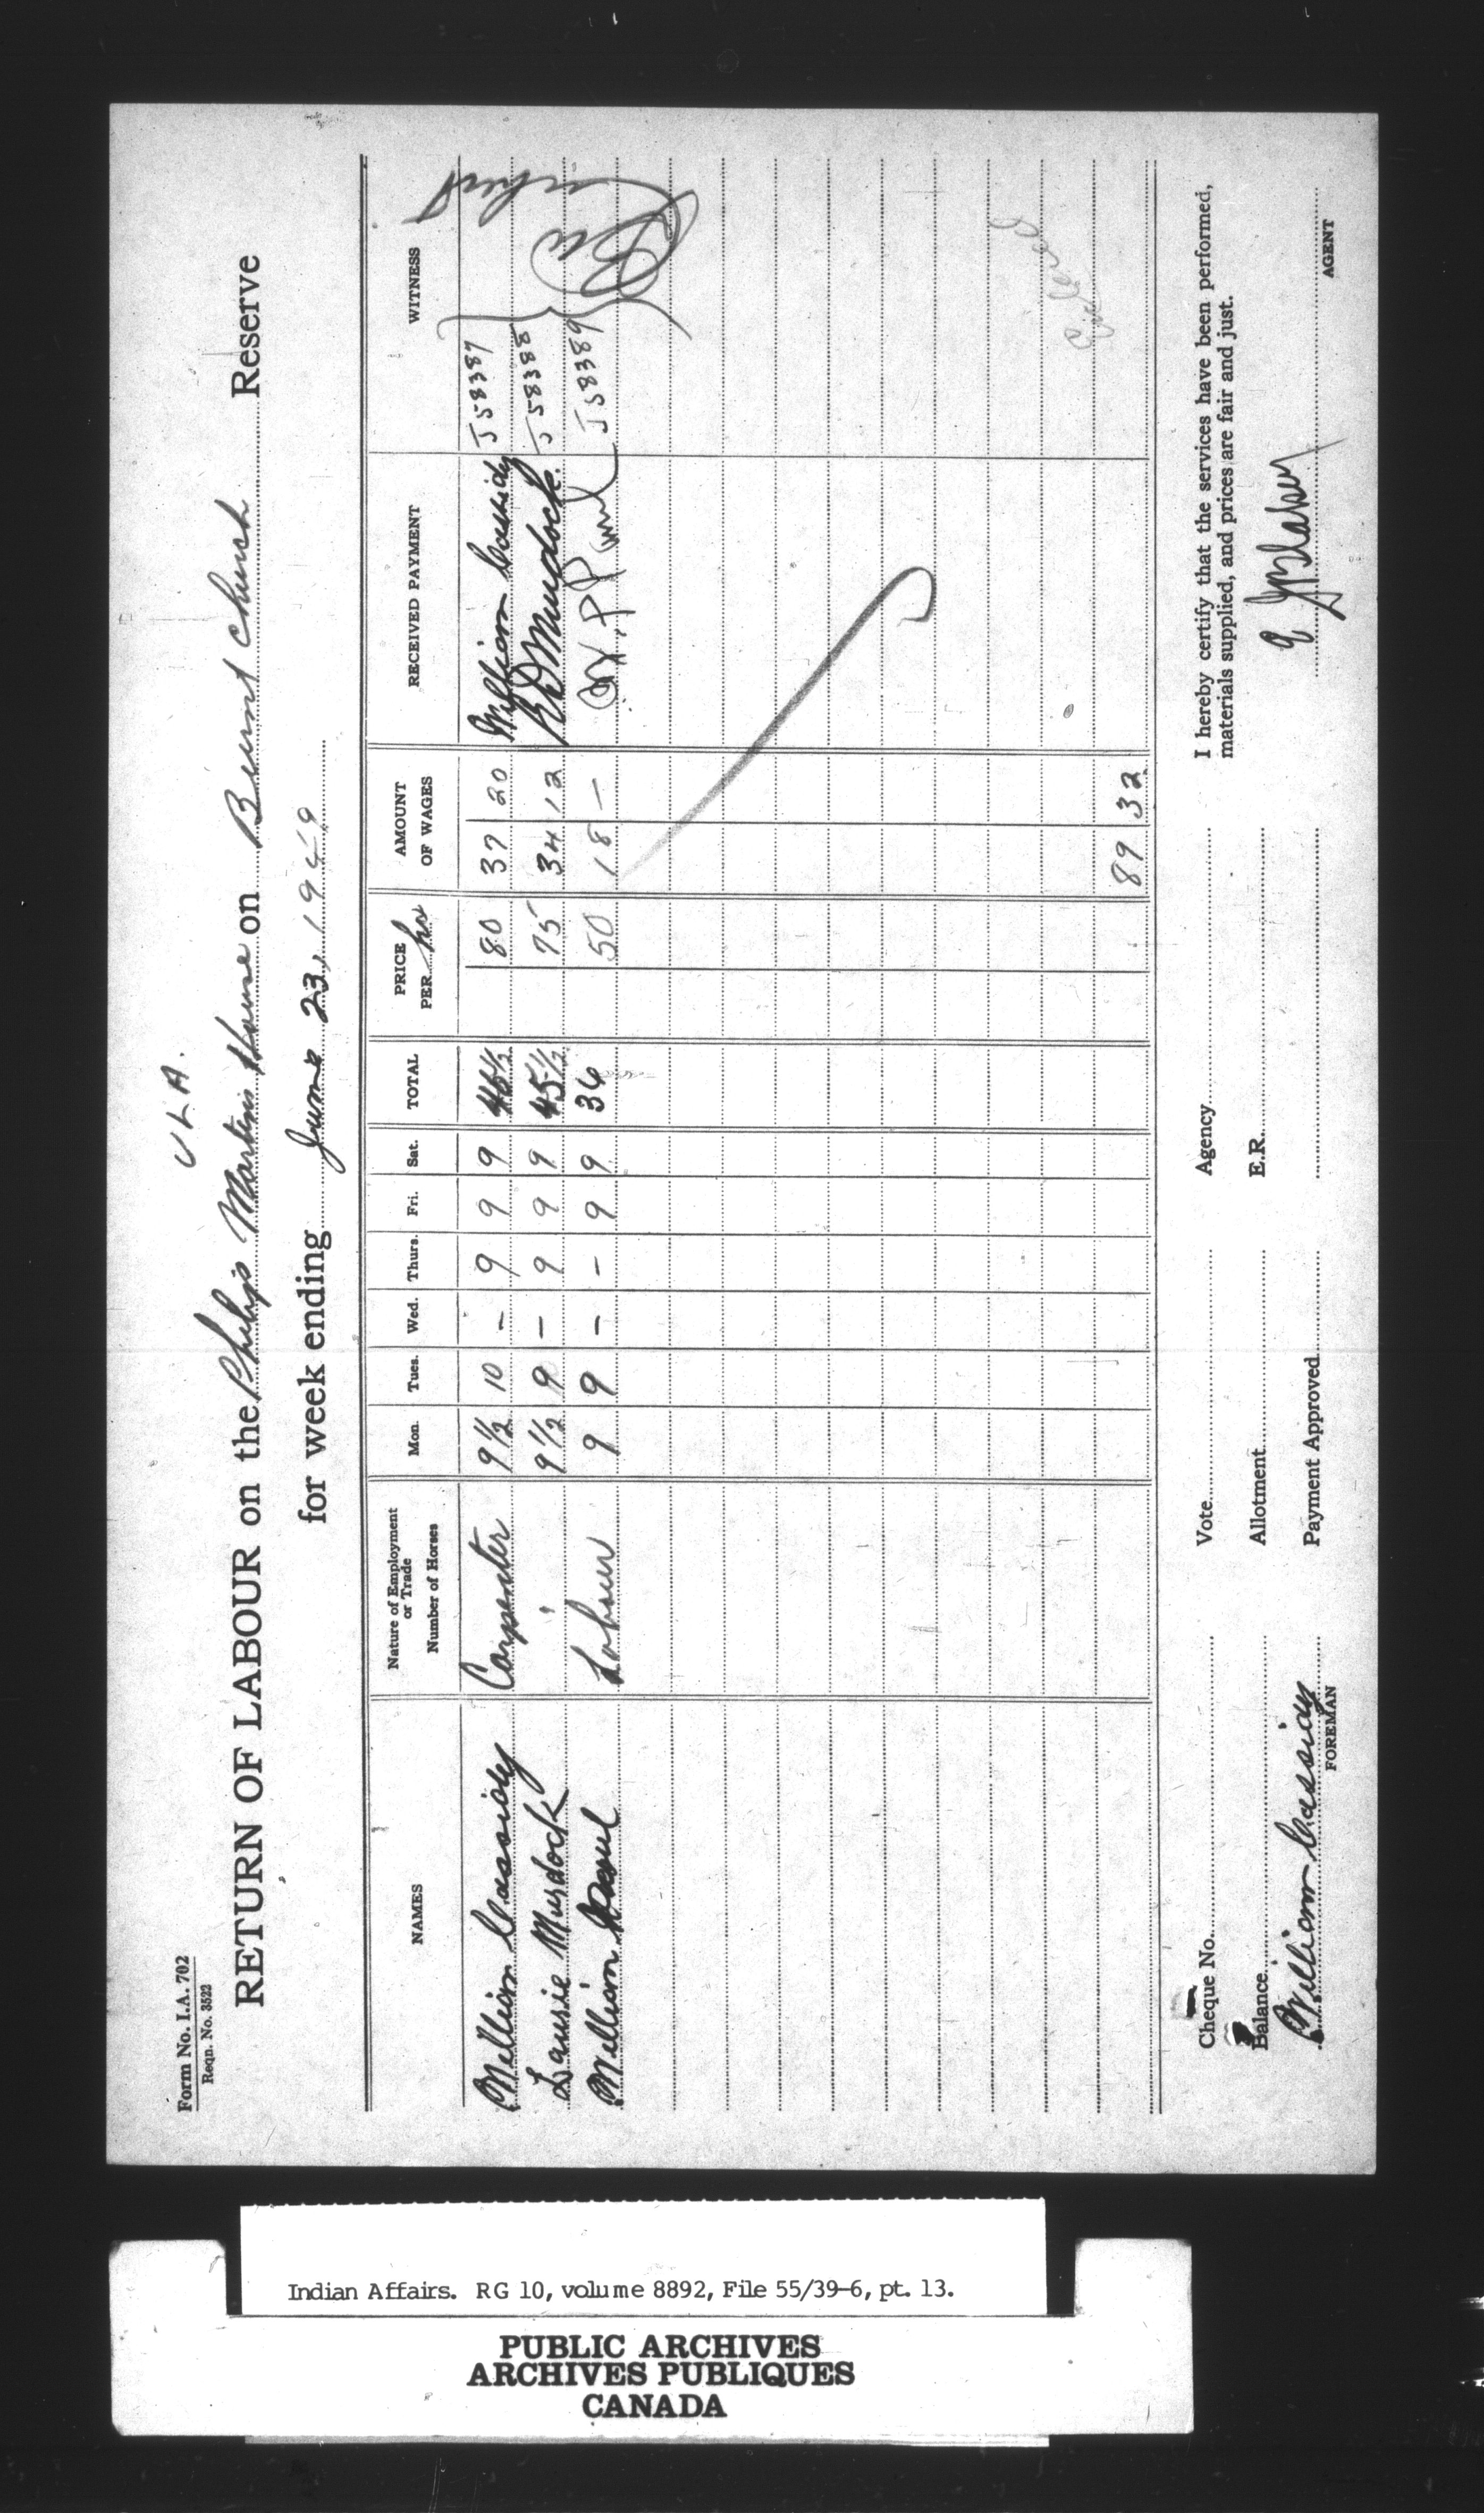 Form No. I.A. 702
Reqn. No. 3522
V L A.
RETURN OF LABOUR on the Philip Martin House on Burnt Church Reserve
for week ending June 23, 1949
NAMES Nature of Employment or Trade Number of Horses Mon. Tues. Wed. Thurs. Fri. Sat. TOTAL PRICE PER hr AMOUNT OF WAGES RECEIVED PAYMENT WITNESS
William Cassidy Carpenter 9½ 10 – 9 9 9 46½ 80 37 20 William Cassidy J58387
Murdock " 9½ 9 – 9 9 9 45½ 75 34 12 Murdock J58388
William Paul Labour 9 9 – – 9 9 36 50 18 – Paul J58389
89 32
Cheque No. Vote Agency I hereby certify that the services have been performed,
materials supplied, and prices are fair and just.
Balance Allotment E.R.
William Cassidy Payment Approved
FOREMAN AGENT
Indian Affairs. RG 10, volume 8892, File 55/39-6, pt. 13.
PUBLIC ARCHIVES
ARCHIVES PUBLIQUES
CANADA